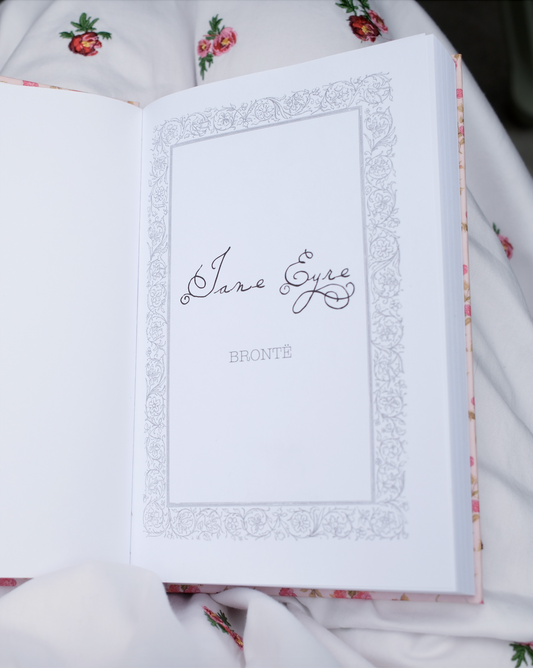 Jane Eyre
BRONTË